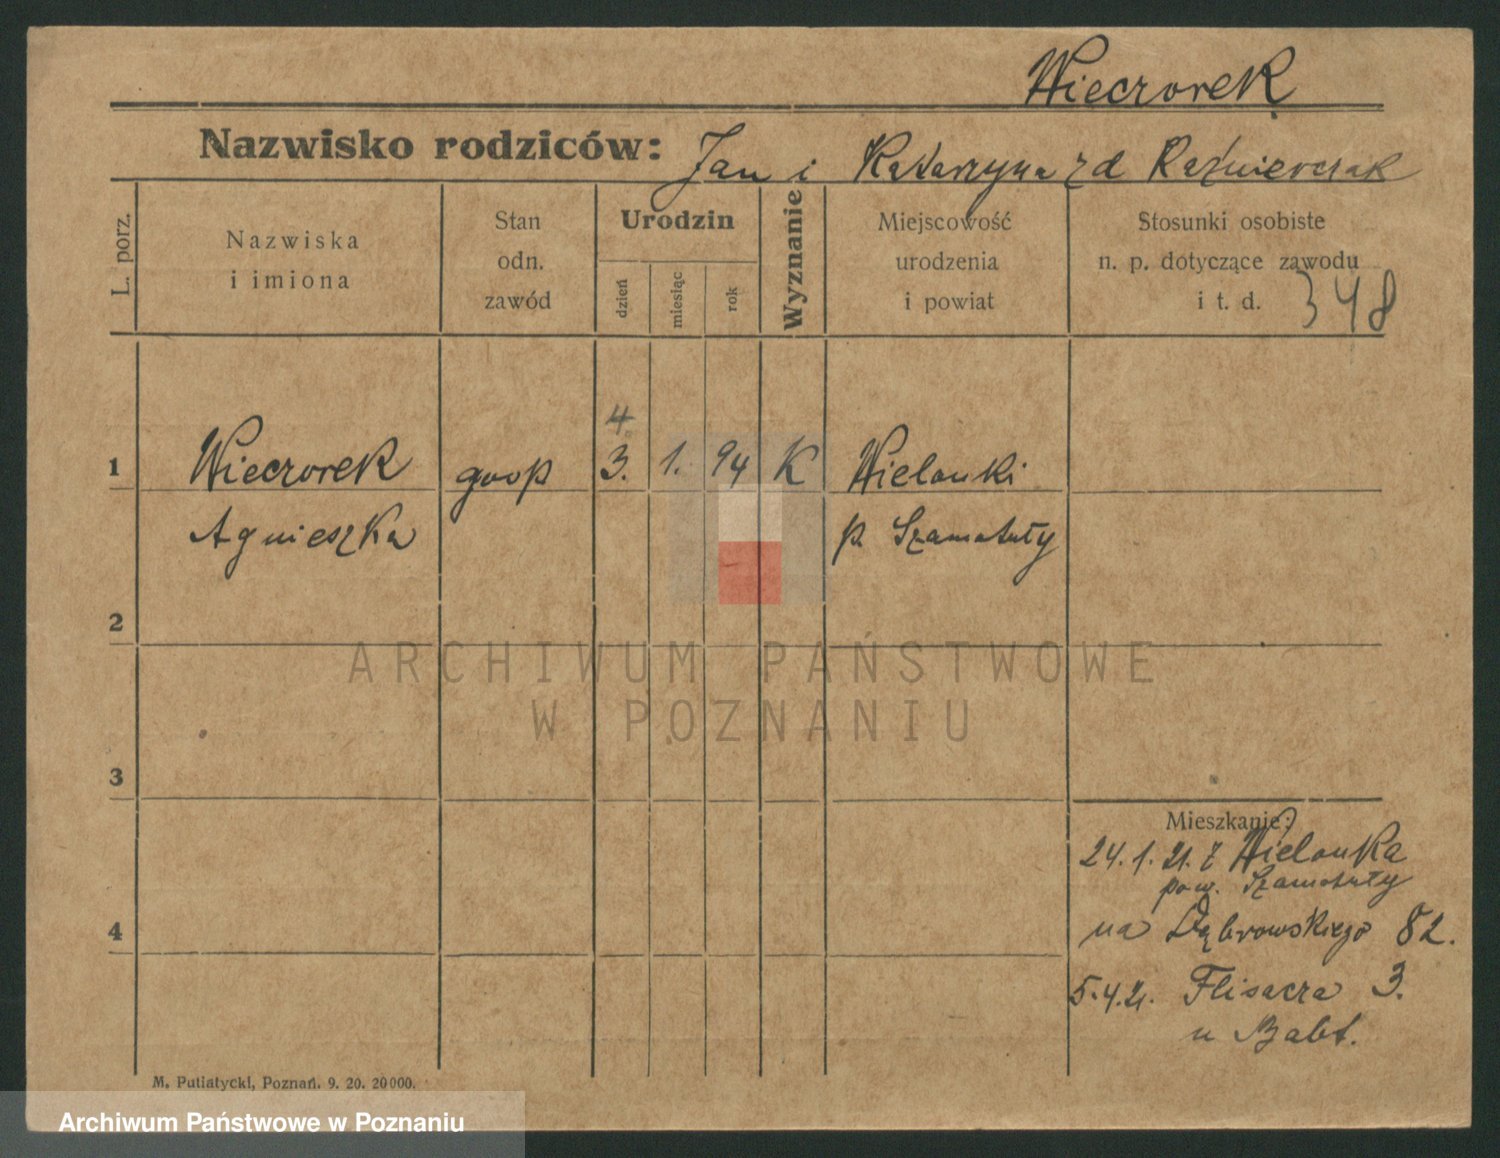 Wieczorek
Nazwisko rodziców: Jan i Katarzyna zd Kaźmierczak
L. porz.
Nazwiska
i imiona
Stan
odn.
zawód
Urodzin
dzień
miesiąc
rok
Wyznanie
Miejscowość
urodzenia
i powiat
Stosunki osobiste
n. p. dotyczące zawodu
i t. d. 348
4.
1 Wieczorek gosp 3. 1. 94 K Wielonki
Agnieszka p. Szamotuły
2
ARCHIWUM PAŃSTWOWE
W POZNANIU
3
Mieszkanie:
24.1.21. z Wielonka
pow. Szamotuły
4 na Dąbrowskiego 82.
5.4.21. Flisacza 3.
u Babt.
M. Putiatycki, Poznań. 9. 20. 20000.
Archiwum Państwowe w Poznaniu